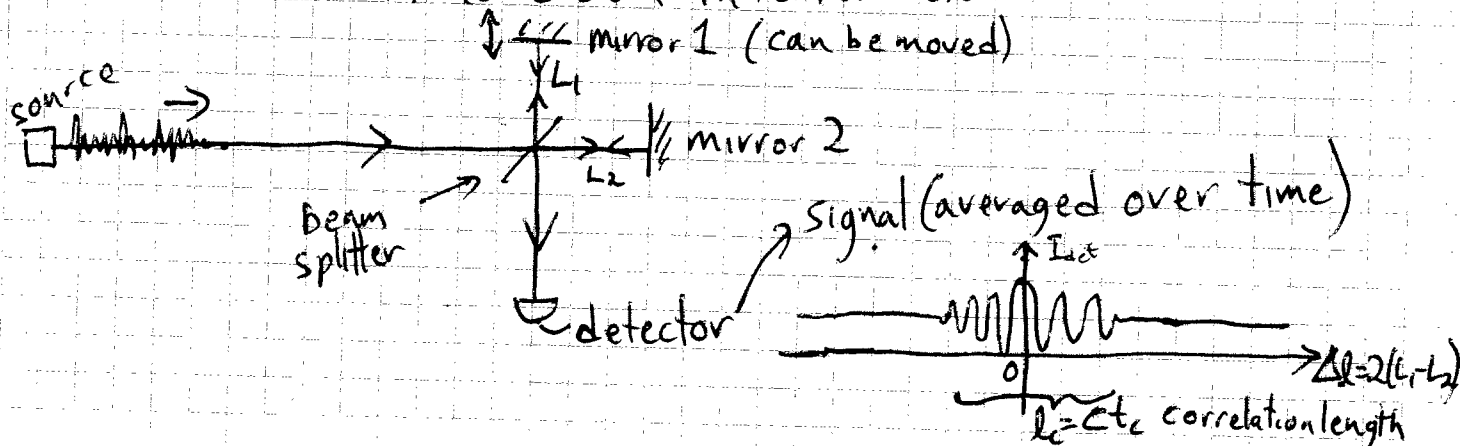 mirror 1 (can be moved)
L₁
source
mirror 2
L₂
beam
splitter
signal (averaged over time)
I_det
detector
0
Δl=2(L₁-L₂)
l_c=ct_c correlation length